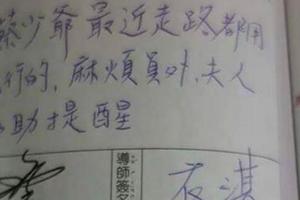 蔡少爺最近走路都用
行的,麻煩員外,夫人
助提醒
導師簽名